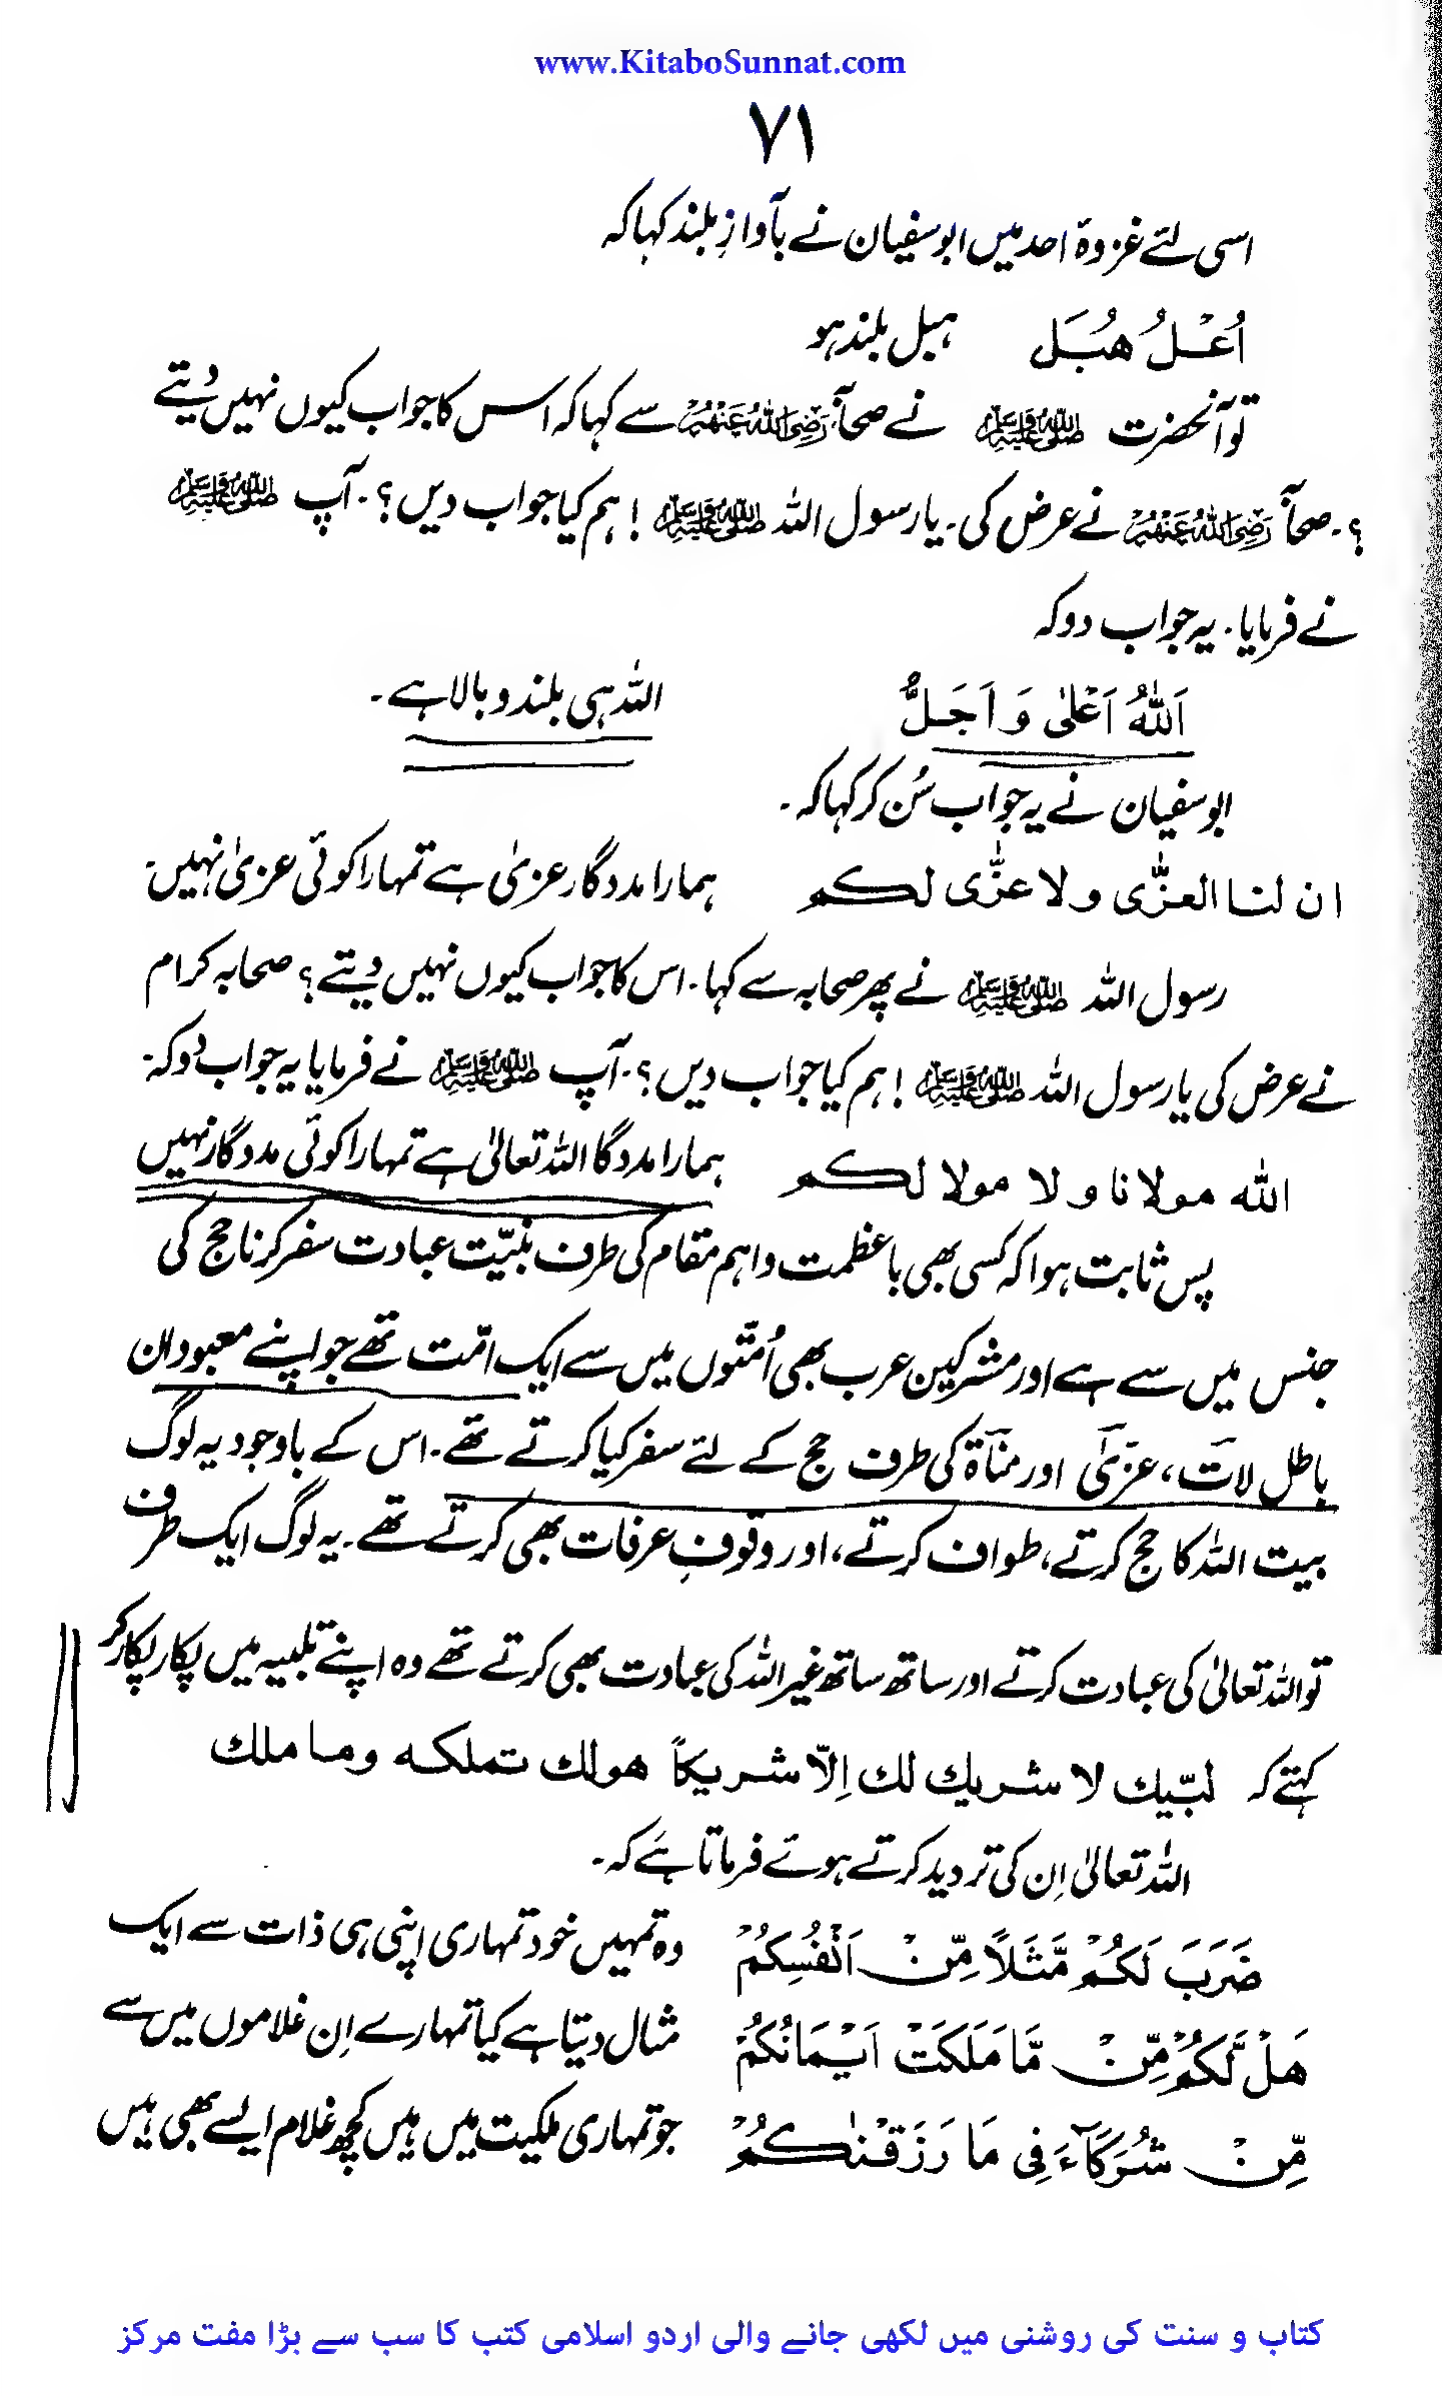 www.KitaboSunnat.com
۷۱
اسی لئے غزوۂ احد میں ابوسفیان نے بآوازِ بلند کہا کہ
اُعْلُ هُبَل ہبل بلند ہو
تو آنحضرت ﷺ نے صحابہ رَضِیَ اللهُ عَنْهُمْ سے کہا کہ اس کا جواب کیوں نہیں دیتے
؟۔ صحابہ رَضِیَ اللهُ عَنْهُمْ نے عرض کی۔ یا رسول اللہ ﷺ ! ہم کیا جواب دیں؟۔ آپ ﷺ
نے فرمایا۔ یہ جواب دو کہ
اَللّٰهُ اَعْلٰی وَ اَجَلُّ اللہ ہی بلند و بالا ہے۔
ابوسفیان نے یہ جواب سُن کر کہا کہ۔
ان لنا العزّٰی ولا عزّٰی لکم ہمارا مددگار عزیٰ ہے تمہارا کوئی عزیٰ نہیں۔
رسول اللہ ﷺ نے پھر صحابہ سے کہا۔ اس کا جواب کیوں نہیں دیتے؟ صحابہ کرام
نے عرض کی یا رسول اللہ ﷺ ! ہم کیا جواب دیں؟۔ آپ ﷺ نے فرمایا یہ جواب دو کہ۔
الله مولانا ولا مولا لکم ہمارا مددگا اللہ تعالیٰ ہے تمہارا کوئی مددگار نہیں
پس ثابت ہوا کہ کسی بھی باعظمت و اہم مقام کی طرف بنیّت عبادت سفر کرنا حج کی
جنس میں سے ہے اور مشرکین عرب بھی اُمتّوں میں سے ایک امّت تھے جو اپنے معبودان
باطل لات، عزیٰ اور مناۃ کی طرف حج کے لئے سفر کیا کرتے تھے۔ اس کے باوجود یہ لوگ
بیت اللہ کا حج کرتے، طواف کرتے، اور وقوفِ عرفات بھی کرتے تھے۔ یہ لوگ ایک طرف
تو اللہ تعالیٰ کی عبادت کرتے اور ساتھ ساتھ غیر اللہ کی عبادت بھی کرتے تھے وہ اپنے تلبیہ میں پکار پکار کر
کہتے کہ لبّیك لا شریك لك اِلّا شریکاً هولك تملکه وما ملك
اللہ تعالیٰ اِن کی تردید کرتے ہوئے فرماتا ہے کہ۔
ضَرَبَ لَکُمْ مَّثَلًا مِّنْ اَنْفُسِکُمْ وہ تمہیں خود تمہاری اپنی ہی ذات سے ایک
هَلْ لَّکُمْ مِّنْ مَّا مَلَکَتْ اَیْمَانُکُمْ مثال دیتا ہے کیا تمہارے اِن غلاموں میں سے
مِّنْ شُرَکَآءَ فِی مَا رَزَقْنٰکُمْ جو تمہاری ملکیت میں ہیں کچھ غلام ایسے بھی ہیں
کتاب و سنت کی روشنی میں لکھی جانے والی اردو اسلامی کتب کا سب سے بڑا مفت مرکز